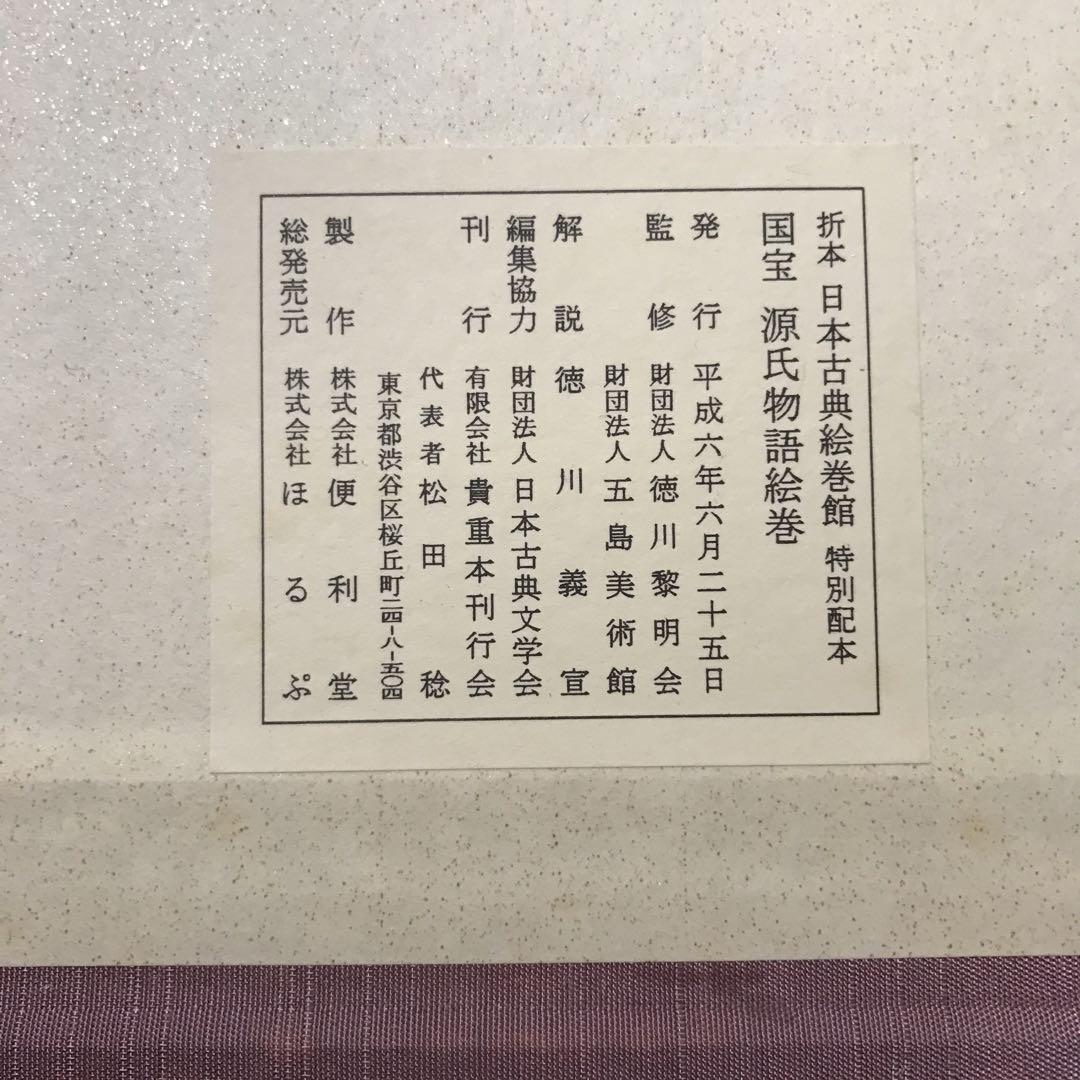 折本 日本古典絵巻館 特別配本
国宝 源氏物語絵巻
発行 平成六年六月二十五日
監修 財団法人 徳川黎明会
財団法人 五島美術館
解説 徳川義宣
編集協力 財団法人 日本古典文学会
刊行 有限会社 貴重本刊行会
代表者 松田稔
東京都渋谷区桜丘町二四-八-五〇四
製作 株式会社 便利堂
総発売元 株式会社 ほるぷ